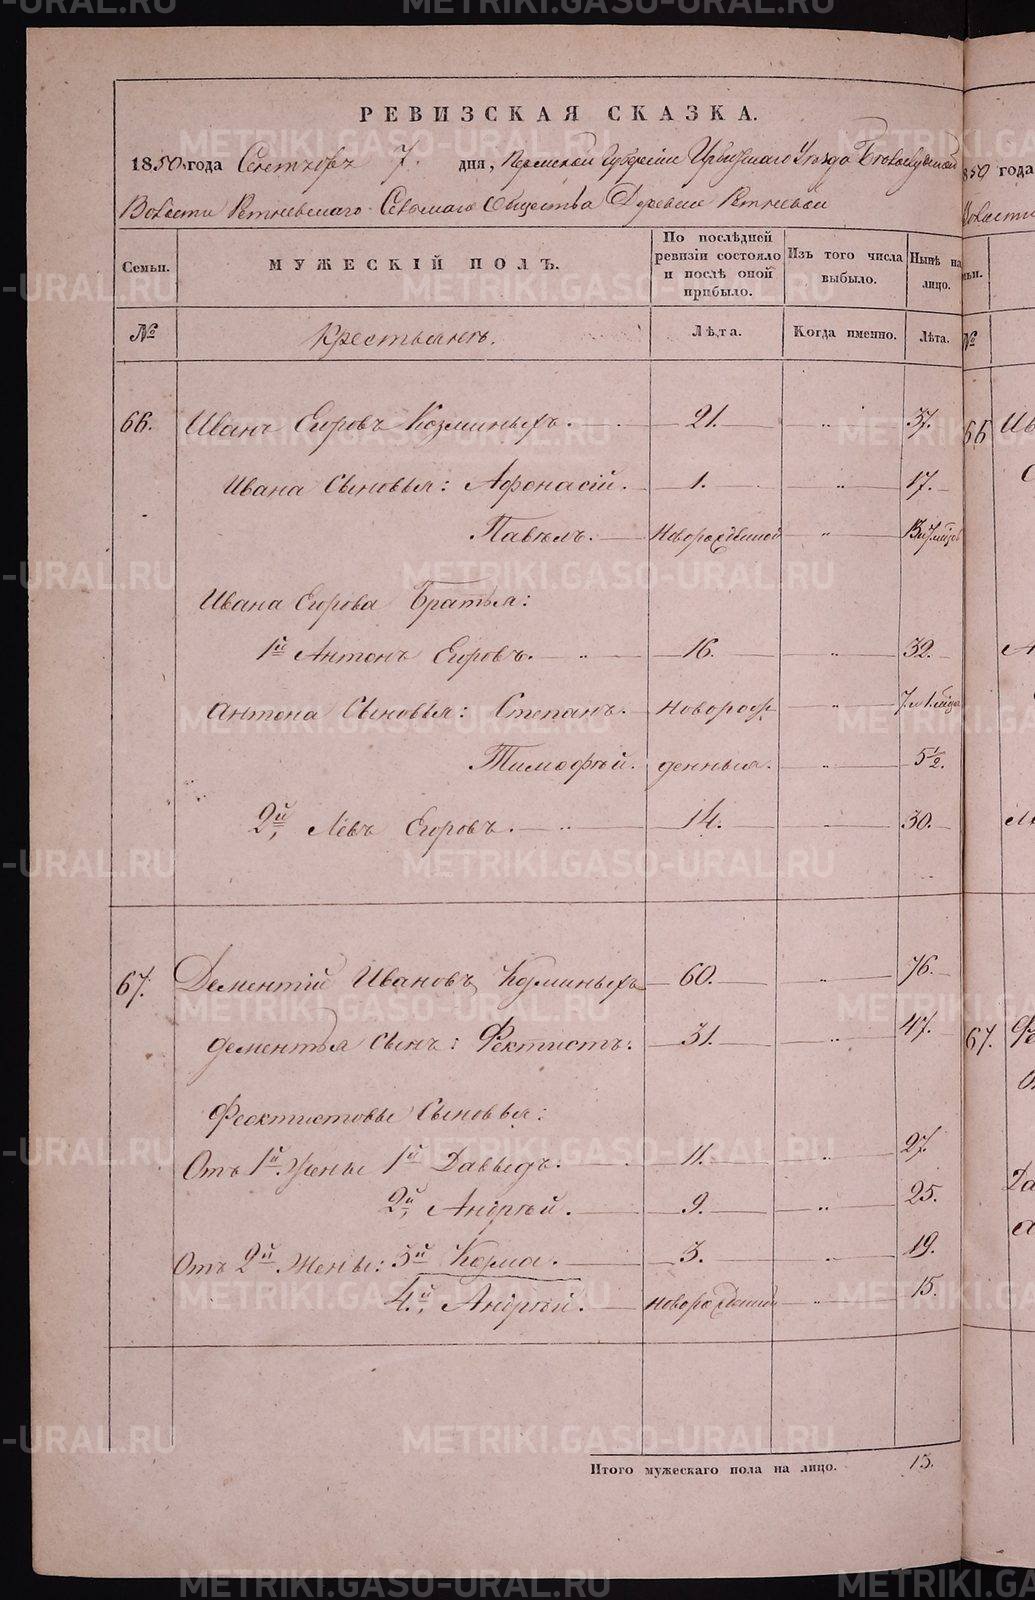 РЕВИЗСКАЯ СКАЗКА.
1850 года Сентября 7. дня, Пермской Губерніи Ирбитскаго Уѣзда
Волости Ретневскаго Сельскаго Общества Деревни Ретневой
Семьи. МУЖЕСКІЙ ПОЛЪ. По послѣдней ревизіи состояло и послѣ оной прибыло. Изъ того числа выбыло. Нынѣ на лицо.
№ Крестьянъ. Лѣта. Когда именно. Лѣта.
66. Иванъ Егоровъ Козминыхъ. 21. „ 37.
Ивана Сыновья: Афонасій. 1. „ 17.
Павелъ. Новорожденной „
Ивана Егорова Братья:
1й Антонъ Егоровъ. „ 16. „ 32.
Антона Сыновья: Степанъ. новорож „
Тимофѣй. денныя. „ 5 1/2.
2й, Левъ Егоровъ. „ 14. „ 30.
67. Дементій Ивановъ Козминыхъ 60. „ 76.
Дементья Сынъ: Фектистъ. 31. „ 47.
Феоктистовы Сыновья:
Отъ 1й Жены 1й Давыдъ. 11. „ 27.
2й, Андрѣй. 9. „ 25.
Отъ 2й Жены: 3й Козма. 3. „ 19.
4й, Андрѣй. новорожденной „ 15.
Итого мужескаго пола на лицо. 13.
850 года
Волости
№
66
67.
METRIKI.GASO-URAL.RU